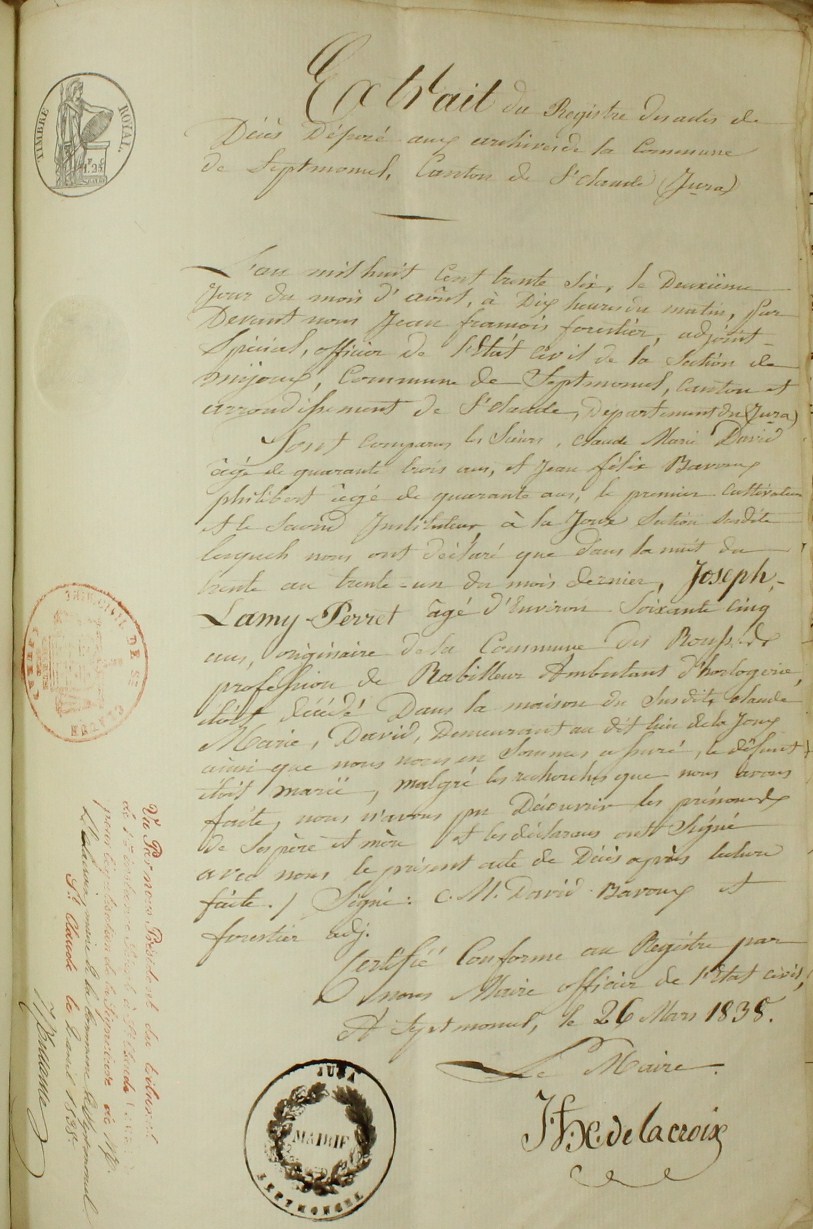 TIMBRE ROYAL.
1 F. 25
Extrait du Registre des actes de
Décès Déposé aux archives de la Commune
de Septmoncel, Canton de St Claude (Jura)
L'an mil huit Cent trente Six, le Deuxième
Jour du mois d'août, à Dix heures du matin, par
Devant nous Jean françois forestier, adjoint
Spécial, officier de l'Etat Civil de la Section de
mijoux, Commune de Septmoncel, Canton et
arrondissement de St Claude, Departement du (Jura)
Sont Comparus les Sieurs, Claude Marie David
âgé de quarante trois ans, et Jean félix Bavoux
philibert âgé de quarante ans, le premier Cultivateur
et le Second Instituteur à la Joux Section Susdite
lesquels nous ont déclaré que Dans la nuit du
trente au trente-un du mois dernier, Joseph,
Lamy-Perret âgé d'Environ Soixante Cinq
ans, originaire de la Commune des Rousses de
profession de Rabilleur Ambulant d'horlogerie,
étoit décédé Dans la maison du Susdit, Claude
Marie, David, Demeurant au dit lieu de la Joux
ainsi que nous nous en Sommes assuré, le défunt
étoit marié, malgré les recherches que nous avons
faite, nous n'avons pu Découvrir les prénoms
de Ses père et mère et les déclarans ont Signé
avec nous le présent acte de Décès après lecture
faite. / Signé: C. M. David Bavoux et
forestier adj.
Certifié Conforme au Registre par
nous Maire officier de l'Etat civil,
A Septmoncel, le 26 Mars 1838.
Le Maire.
de lacroix
JURA
MAIRIE
SEPTMONCEL
TRIB. CIVIL DE ST CLAUDE
Vu Par nous Président du tribunal
de 1ère instance Séant à St Claude
pour légalisation de la Signature de Mr
Delacroix, maire de la Commune de Septmoncel
St Claude le 2 avril 1838.